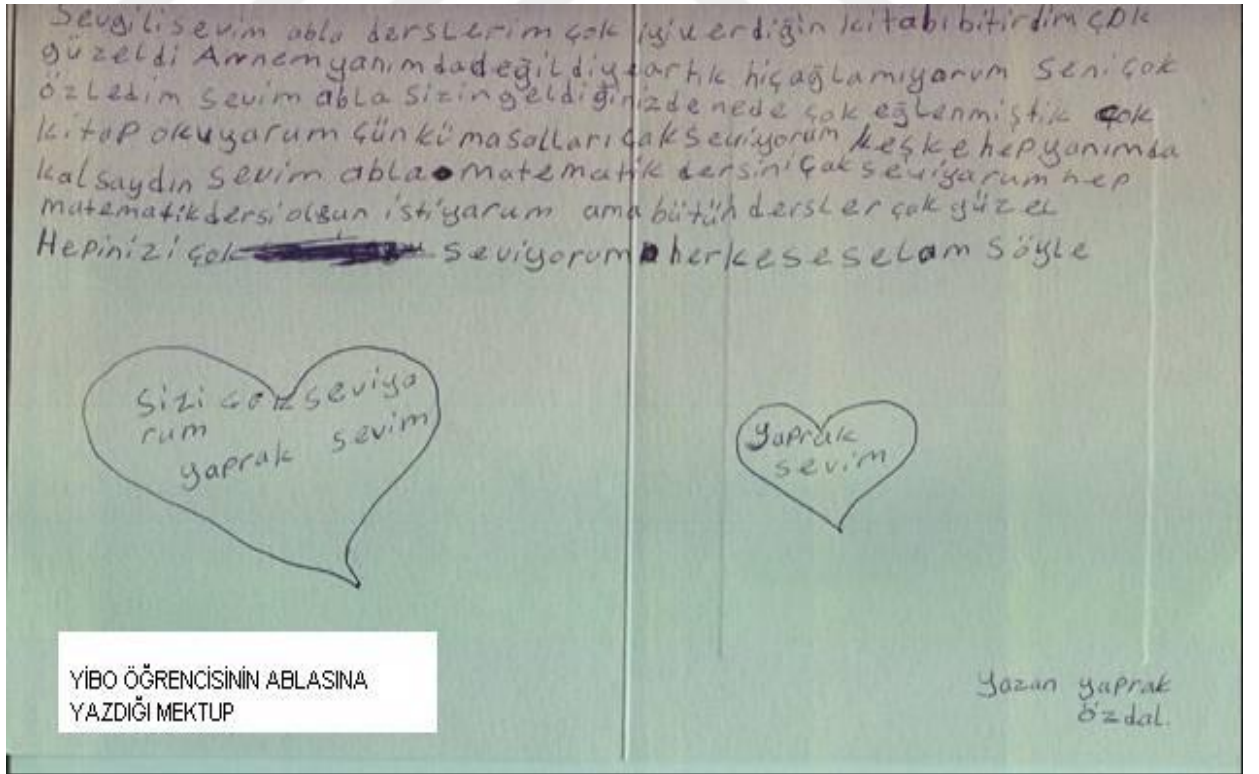 Sevgili sevim abla derslerim çok iyi verdiğin kitabı bitirdim çok
güzeldi Annem yanımda değil diye artık hiç ağlamıyorum seni çok
özledim sevim abla sizin geldiğinizde nede çok eğlenmiştik çok
kitap okuyarum çünkü masalları çok seviyorum keşke hep yanımda
kalsaydın sevim abla matematik dersini çok seviyarum hep
matematik dersi olsun istiyarum ama bütün dersler çok güzel
Hepinizi çok seviyorum herkese selam söyle
sizi çok seviya
rum
yaprak sevim
yaprak
sevim
YİBO ÖĞRENCİSİNİN ABLASINA
YAZDIĞI MEKTUP
yazan yaprak
özdal.